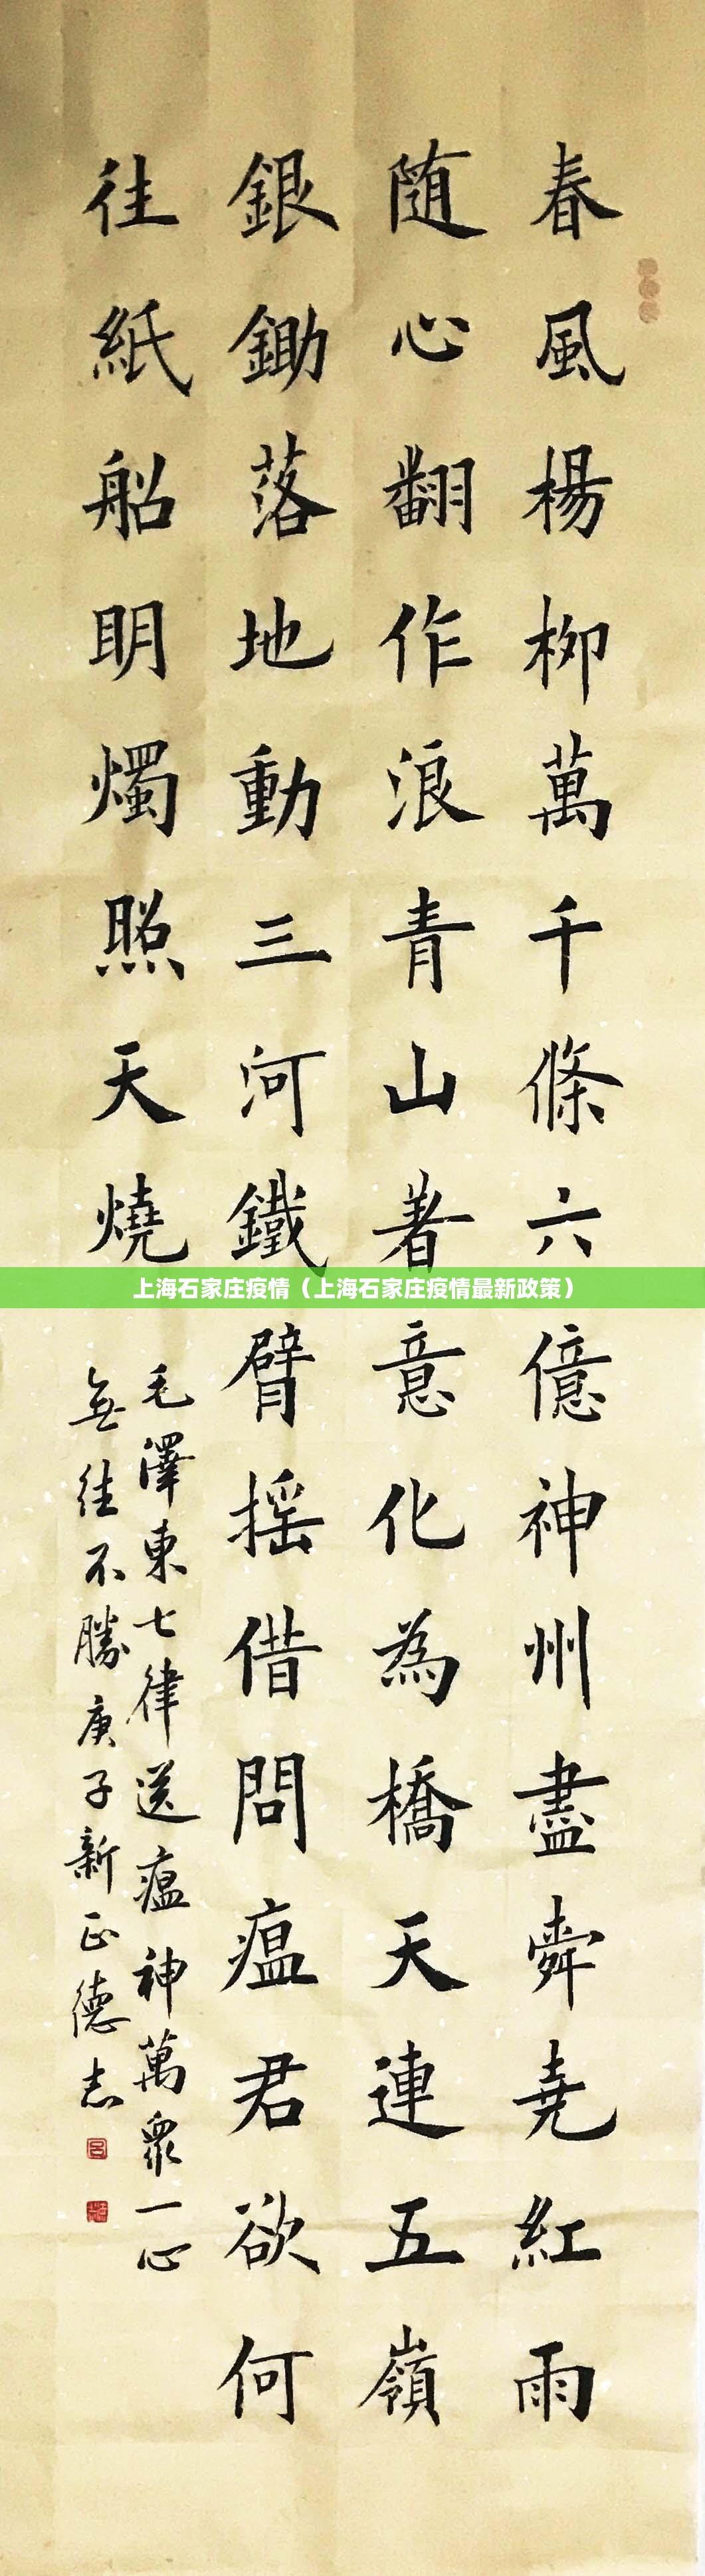 春風楊柳萬千條六億神州盡舜堯紅雨
随心翻作浪青山着意化為橋天連五嶺
銀鋤落地動三河鐵臂摇借問瘟君欲何
往紙船明燭照天燒
毛澤東七律送瘟神萬衆一心
無往不勝庚子新正德志
上海石家庄疫情（上海石家庄疫情最新政策）